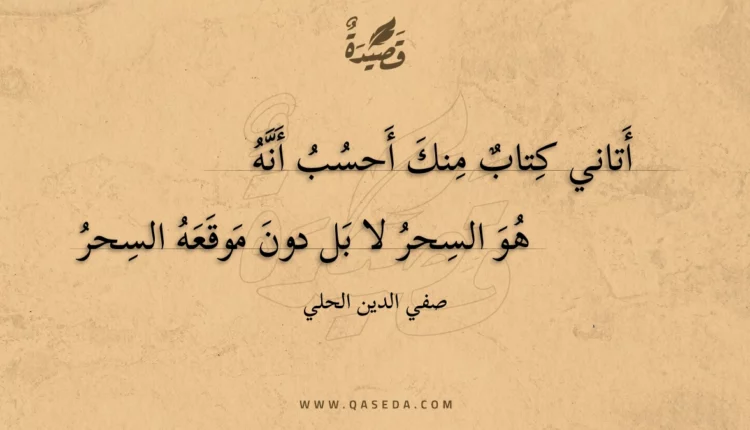 قَصِيدَةٌ
أَتاني كِتابٌ مِنكَ أَحسُبُ أَنَّهُ
هُوَ السِحرُ لا بَل دونَ مَوقَعَهُ السِحرُ
صفي الدين الحلي
WWW.QASEDA.COM